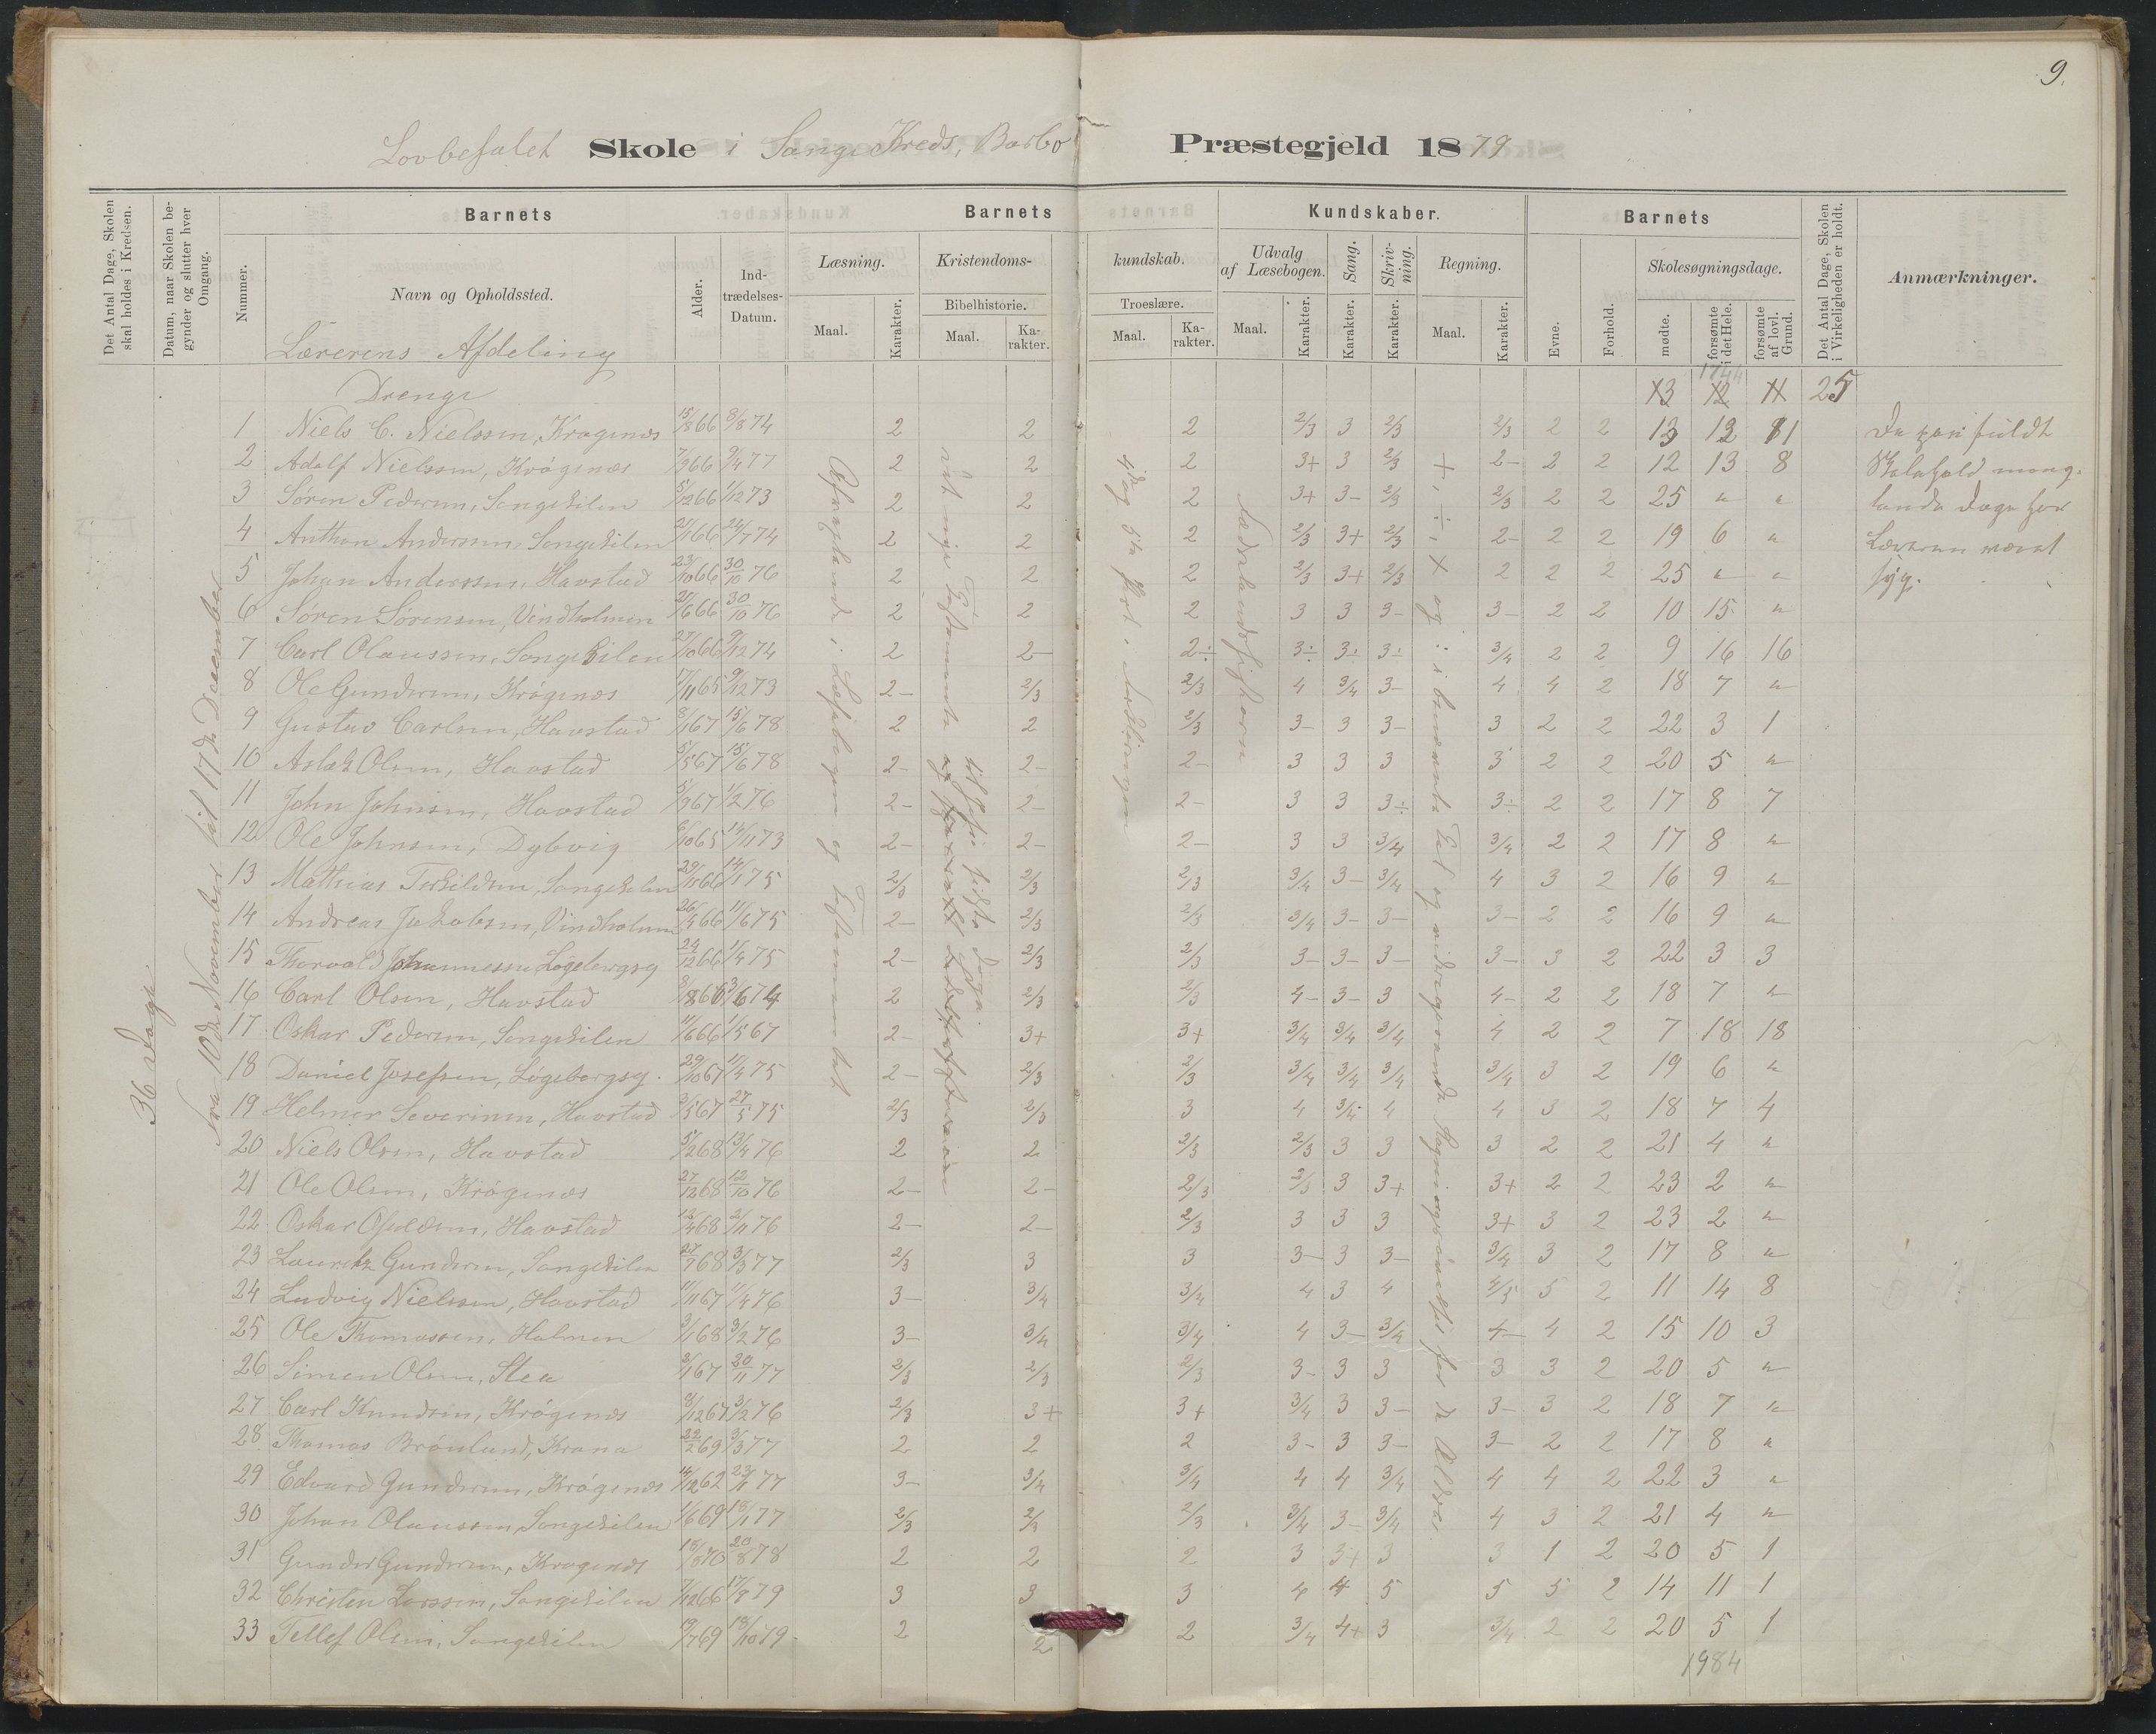 9.
Lovbefalet Skole i Songe Kreds, Barbo Præstegjeld 1879
Det Antal Dage, Skolen skal holdes i Kredsen.
Datum, naar Skolen begynder og slutter hver Omgang.
Nummer.
Barnets
Navn og Opholdssted.
Alder.
Indtrædelses-Datum.
Barnets
Læsning.
Maal.
Karakter.
Kristendoms-
Bibelhistorie.
Maal.
Karakter.
kundskab.
Troeslære.
Maal.
Karakter.
Kundskaber.
Udvalg af Læsebogen.
Maal.
Karakter.
Sang.
Karakter.
Skrivning.
Karakter.
Regning.
Maal.
Karakter.
Barnets
Evne.
Forhold.
Skolesøgningsdage.
mødte.
forsømte i det Hele.
forsømte af lovl. Grund.
Det Antal Dage, Skolen i Virkeligheden er holdt.
Anmærkninger.
36 Dage
Fra 10de November til 17de December
Lærerens Afdeling
Drenge
25
1 Niels C. Nielssen, Krøgenæs 15/8 66 8/8 74 2 2 2 2/3 3 2/3 2/3 2 2 13 12 11
2 Adolf Nielssen, Krøgenæs 7/3 66 9/4 77 2 2 2 3+ 3 2/3 2- 2 2 12 13 8
3 Søren Pedersen, Songekilen 5/12 66 1/12 73 2 2 2 3+ 3- 2/3 2/3 2 2 25 " "
4 Anthon Anderssen, Songekilen 21/1 66 24/7 74 2 2 2 2/3 3+ 2/3 2- 2 2 19 6 "
5 Johan Anderssen, Havstad 23/10 66 30/10 76 2 2 2 2/3 3+ 2/3 2 2 2 25 " "
6 Søren Sørensen, Vindholmen 21/6 66 30/10 76 2 2 2 3 3 3- 3- 2 2 10 15 "
7 Carl Olaussen, Songekilen 27/10 66 9/12 74 2 2- 2÷ 3÷ 3÷ 3÷ 3/4 2 2 9 16 16
8 Ole Gundersen, Krøgenæs 17/11 65 9/12 73 2- 2/3 2/3 4 3/4 3- 4 4 2 18 7 "
9 Gustav Carlsen, Havstad 8/1 67 15/6 78 2 2 2/3 3- 3 3- 3 2 2 22 3 1
10 Aslak Olsen, Havstad 5/5 67 15/6 78 2- 2- 2- 3 3 3 3 2 2 20 5 "
11 John Johnsen, Havstad 5/9 67 1/2 76 2- 2- 2- 3 3 3÷ 3÷ 2 2 17 8 7
12 Ole Johnsen, Dybvig 6/10 65 14/11 73 2- 2- 2- 3 3 3/4 3/4 2 2 17 8 "
13 Mathias Terkildsen, Songekilen 29/11 66 14/1 75 2/3 2/3 2/3 3/4 3- 3/4 4 3 2 16 9 "
14 Andreas Jakobsen, Vindholmen 26/4 66 11/6 75 2- 2/3 2/3 3/4 3- 3- 3- 2 2 16 9 "
15 Thorvald Johannessen Løgebergsg 24/12 66 1/4 75 2- 2/3 2/3 3- 3- 3- 3- 3 2 22 3 3
16 Carl Olsen, Havstad 8/8 66 3/6 74 2 2/3 2/3 4- 3- 3 4- 2 2 18 7 "
17 Oskar Pedersen, Songekilen 11/6 66 1/5 67 2- 3+ 3+ 3/4 3/4 3/4 4 2 2 7 18 18
18 Daniel Josefsen, Løgebergsg. 29/10 67 11/4 75 2- 2/3 2/3 3/4 3/4 3/4 3/4 3 2 19 6 "
19 Helmer Severinsen, Havstad 3/5 67 27/5 75 2/3 2/3 3 4 3/4 4 4 3 2 18 7 4
20 Niels Olsen, Havstad 5/2 68 13/4 76 2 2 2/3 2/3 3 3 3 2 2 21 4 "
21 Ole Olsen, Krøgenæs 27/12 68 12/10 76 2- 2- 2/3 2/3 3 3+ 3+ 2 2 23 2 "
22 Oskar Osuldsen, Havstad 12/4 68 2/11 76 2- 2- 2/3 3 3 3 3+ 3 2 23 2 "
23 Lauritz Gundersen, Songekilen 27/7 68 3/3 77 2/3 3 3 3- 3 3- 3/4 3 2 17 8 "
24 Ludvig Nielssen, Havstad 11/11 67 11/4 76 3- 3/4 3/4 4 3 4 4/5 5 2 11 14 8
25 Ole Thomassen, Holmen 3/1 68 3/2 76 3- 3/4 3/4 4 3- 3/4 4- 4 2 15 10 3
26 Simen Olsen, Slea 3/1 67 20/11 77 2/3 2/3 2/3 3- 3 3 3 3 2 20 5 "
27 Carl Knudsen, Krøgenæs 8/12 67 3/2 76 2/3 3+ 3+ 3/4 3 3- 3- 3 2 18 7 "
28 Thomas Brønlund, Krana 22/2 69 3/3 77 2 2 2 3- 3 3- 3- 2 2 17 8 "
29 Edvard Gundersen, Krøgenæs 14/12 62 23/11 77 3- 3/4 3/4 4 4 3/4 4 4 2 22 3 "
30 Johan Olaussen, Songekilen 1/6 69 18/1 77 2/3 2/3 2/3 3/4 3- 3/4 4 3 2 21 4 "
31 Gunder Gundersen, Krøgenæs 20/8 78 2 2 2 3 3+ 3 3 1 2 20 5 1
32 Christen Larssen, Songekilen 7/12 66 17/8 79 3 3 3 4 4 5 5 5 2 14 11 1
33 Tellef Olsen, Songekilen 19/7 69 18/10 79 2 2 2 3/4 4+ 3 3/4 2 2 20 5 1
1984
Afvexlende i Læsebogen og Testamentet
det nye Testamente
til Jesu sidste Dage.
i Forklaringen
Fædrelandshistorien
+, ÷, × og : i benævnte Tal
De paa fuldt
Skolehold mang-
lende Dage har
Læreren været
syg.